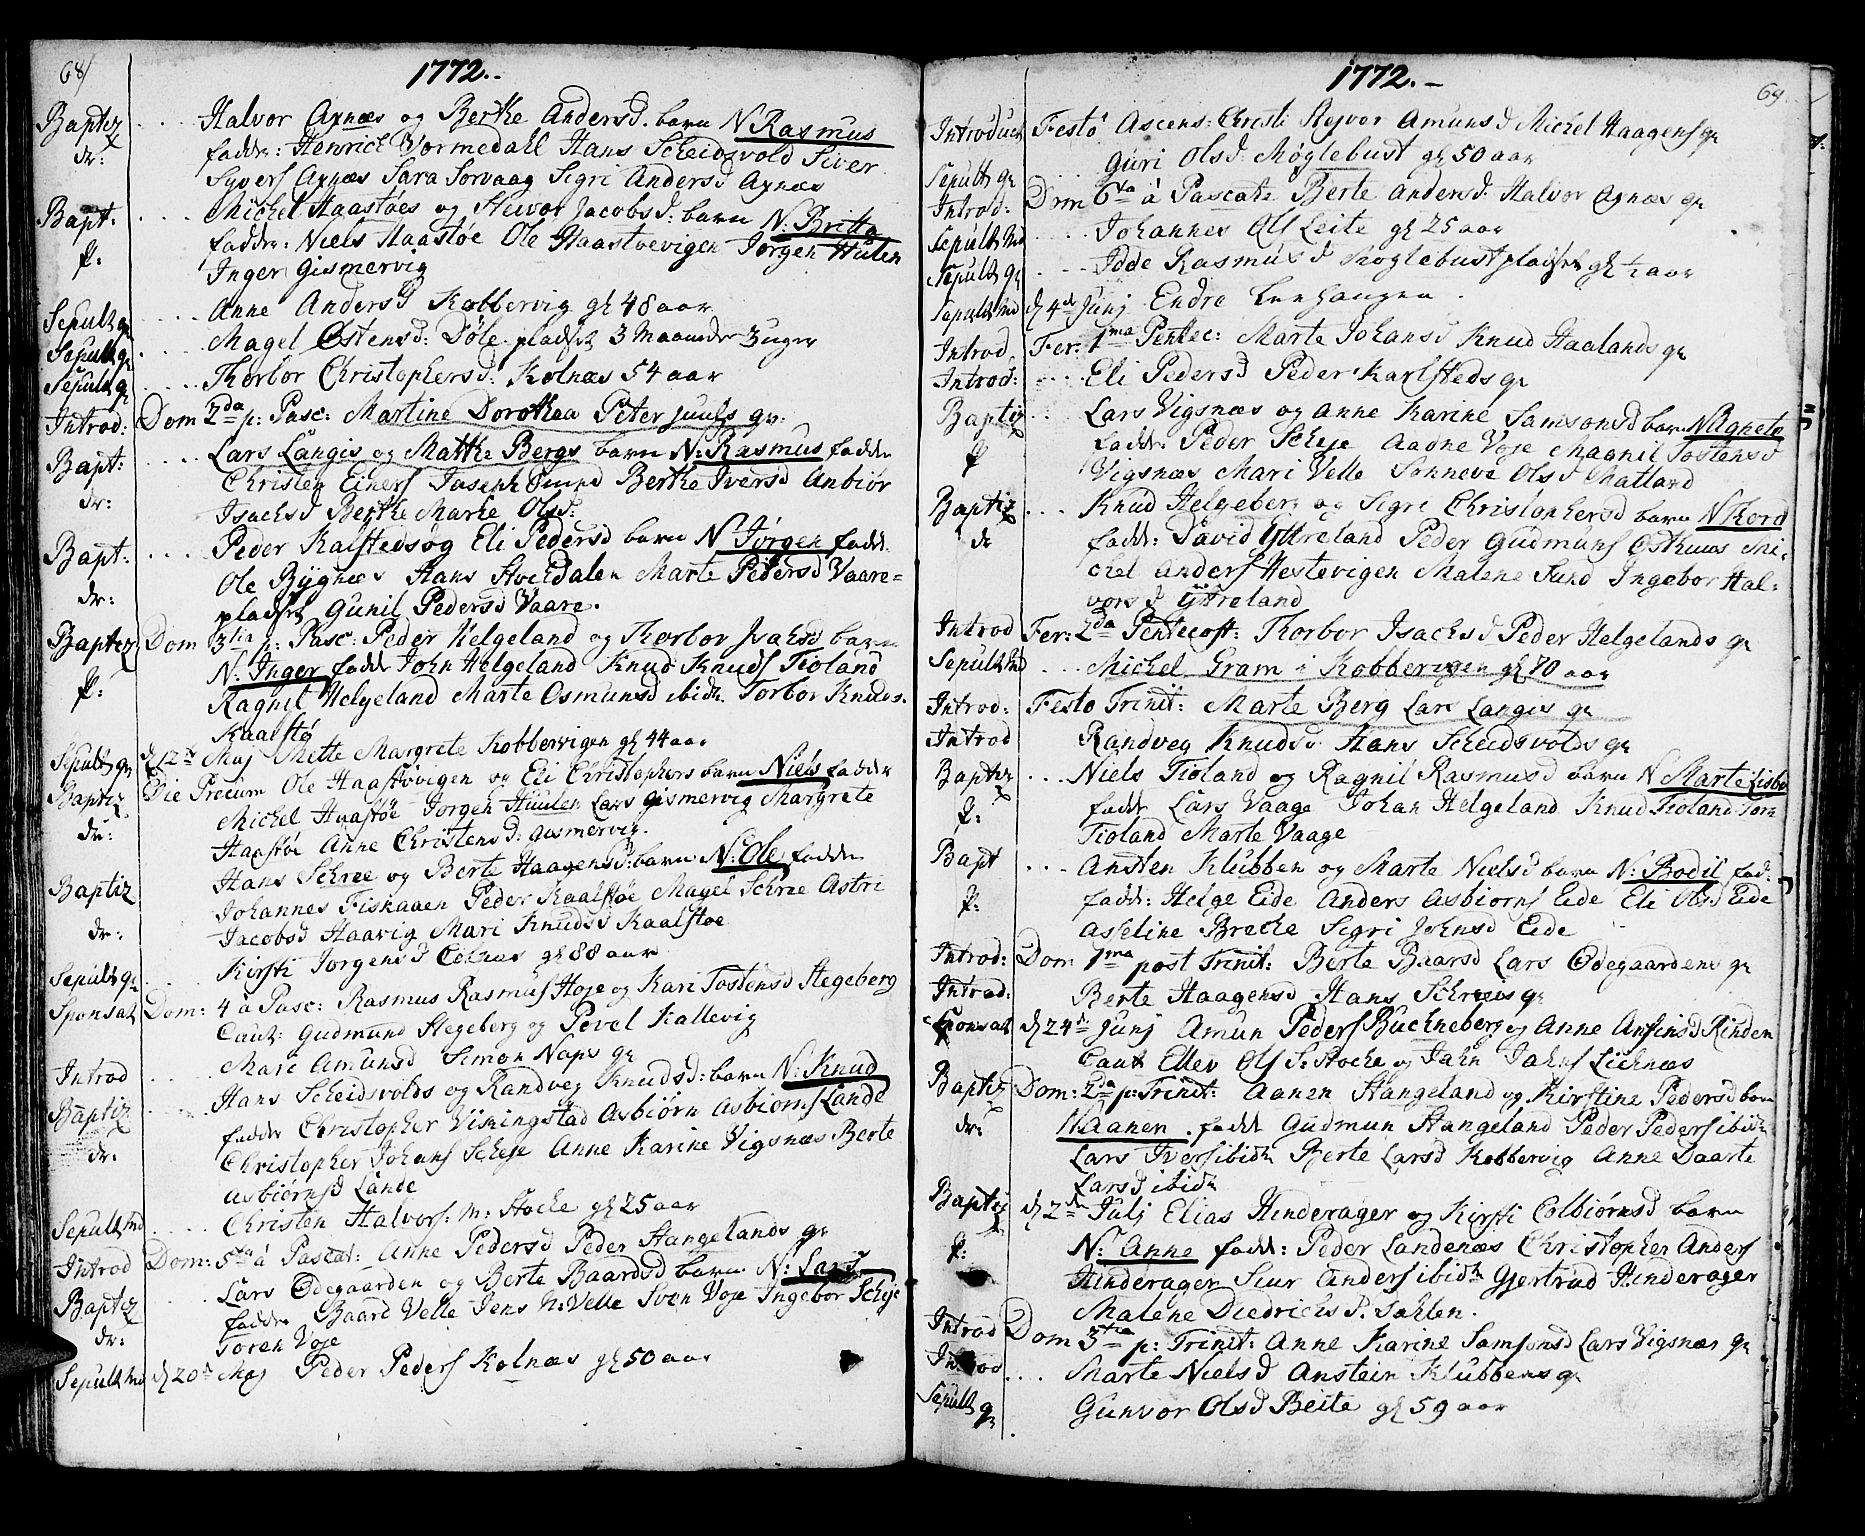 68/
1772.-
Baptiz .... Halvor Axnæs og Berthe Andersd. barn N Rasmus
dr: fadde: Henrich Vormedall Hans Scheidsvold Siver
Syvers Axnæs Sara Sørvaag Sigri Andersd Axnæs
Bapt: .... Michel Haastøes og Jacobsd: barn N. Britta
p: fadde: Niels Haastøe Ole Haastoevigen Jorgen Hulen
Inger Gismervig
Sepult qr .... Anne Andersd Kobbervig gl 48 aar
Sepult qr .... Magel Østensd: Døle pladset 3 Maaneder 3 uger
Sepult q .... Thorbor Christophersd: Kolnæs 54 aar
Introd: Dom 2da p: Pasc: Martine Dorothea Peter Juuls qr:
Bapt: .... Lars Langis og Matthe Bergs barn N: Rasmus fadde
dr: Christen Einers Joseph Berthe Iversd Anbiør
Isachsd Berthe Marie Olsd:
Bapt: .... Peder Kalsteds og Eli Pedersd barn N Jørgen fadd.
dr: Ole Bygnæs Hans Stockdalen Marte Pedersd Vaare=
pladset Gunil Pedersd Vaare.
Baptiz Dom 3tia p: Pasc: Peder Helgeland og Thorbor Isachsd barn
p: N: Inger fadde John Helgeland Knud Knuds Tioland
Ragnil Helgeland Marte Osmunsd ibid. Torbor Knuds.
Kaalstø
Sepult qr d 12te Maj Mette Margrete Kobbervigen gl 44 aar
Baptiz Die Precum Ole Haastøvigen og Eli Christophers barn Niels fadde
dr: Michel Haastøe Jorgen Huulen Lars Gismervig Margrete
Haastøe Anne Christensd: Gismervig.
Baptiz Hans Schree og Berte Haagensd: barn N: Ole fadde
dr: Johannes Fiskaaen Peder Kaalstøe Magel Schree Astri
Jacobsd Haavig Mari Knudsd Kaalstøe
Sepult qr .... Kirsti Jorgensd Colnæs gl 88 aar
Sponsat Dom: 4 à Pasc: Rasmus Rasmus Høje og Kari Tostensd Stegeberg
Caut: Gudmund Stegeberg og Povel Kallevig
Introd .... Mari Amunsd Simon Naps qr
Baptiz .... Hans Scheidsvolds og Randveg Knudsd: barn N: Knud
dr: fadde Christopher Vikingstad Asbiørn Asbiorns Lande
Christopher Johans Scheje Anne Karine Vigsnæs Berte
Asbiørnsd Lande
Sepult md .... Christen Halvors: m: Stoche gl 25 aar
Introd Dom: 5ta à Pascat: Anne Pedersd Peder Stangelands qr
Baptiz .... Lars Ødegaarden og Berte Baardsd barn N: Lars
dr: fadde Baard Velle Jens N: Velle Sven Voje Ingebor Scheje
Toren Voje
Sepult md d 20de Maj Peder Peders Kolnæs gl 50 aar
1772.-
69.
Introduct Festo Ascens: Christi Reyvor Amunsd Michel Haagens qr
Sepult qr .... Guri Olsd: Møglebust gl 50 aar
Introd: Dom 6ta à Pascate Berte Andersd Halvor Axnæs qr
Sepult Md .... Johannes Ols Leite gl 25 aar
Sepult qr .... Idde Rasmusd Moglebustpladset gl 1/2 aar
Sepult Md d 4de Junj Endre Lenhaugen.
Introd Fer: 1ma Pentec: Marte Johansd Knud Haalands qr
Introd: .... Eli Pedersd Peder Karlsteds qr
Baptiz .... Lars Vigsnæs og Anne Karine Samsonsd barn N Agnete
p fadde: Peder Scheje Aadne Voje Magnil Tostensd
Vigsnæs Mari Velle Sonneve Olsd Mattard
Baptiz .... Knud Helgeberg og Sigri Christophersd barn N Thord
dr fadde: David Yttreland Peder Gudmuns Osthuus Mi-
chel Anders Hestevigen Malene Sund Ingebor Hal-
vorsd Yttreland
Introd Fer: 2da Pentecost: Thorbor Isachsd Peder Helgelands qr
Sepult Md .... Michel Gram i Kobbervigen gl 70 aar
Introd: Festo Trinit: Marte Berg Lars Langes qr
Introd Randveg Knudsd Hans Scheidsvolds qr
Baptiz .... Niels Tioland og Ragnil Rasmusd barn N Marte Lisbe
p: fadde Lars Vaage Johan Helgeland Knud Tioland
Tioland Marte Vaage
Bapt .... Ansten Klubben og Marte Nielsd barn N: Bodil fad:
p: fadde: Helge Eide Anders Asbiorns Eide Eli Olsd Eide
Aseline Breche Sigri Johnsd Eide
Introd: Dom 1ma post Trinit: Berte Baarsd Lars Ødegaardens qr
Introd: Berte Haagensd Hans Schrees qr
Sponsat d 24de Junj Amun Peders Buchneberg og Anne Ansinsd Rinden
Caut Ellev Ols S: Stoche og Jahn Jahns Lichnæs
Baptiz Dom: 2da p: Trinit: Aanen Stangeland og Kirstine Pedersd barn
dr: N Aanen. fadd Gudmun Stangeland Peder Peders ibid
Lars Ivers ibid Berte Larsd Kobbervig Anne Daarte
Larsd ibid
Baptiz d 2de Julj Elias Hinderager og Kirsti Colbiørnsd barn
p: N: Anne fadde: Peder Landenæs Christopher Anders
Hinderager Siur Anders ibid Gjertrud Hinderager
Malene Diedrichs P. Sahlen.
Introd Dom 3tia p: Trinit: Anne Karine Samsonsd Lars Vigsnæs qr
Introd .... Marte Nielsd Anstein Klubbens qr
Sepult qr Gunvor Olsd Beite gl 59 aar